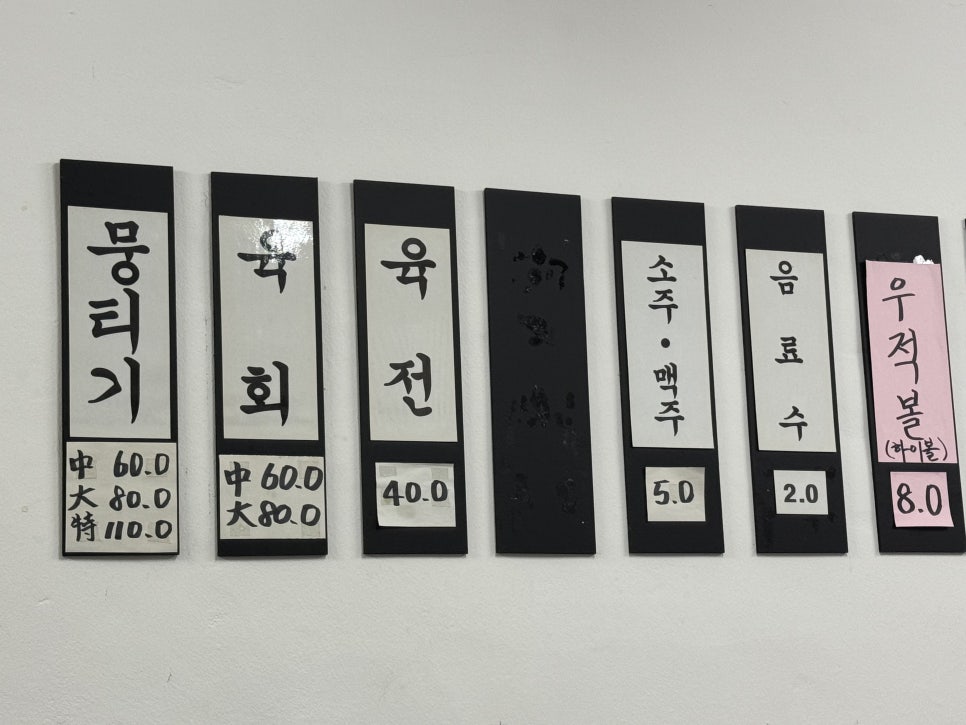 뭉티기
中 60.0
大 80.0
特 110.0
육회
中 60.0
大 80.0
육전
40.0
소주·맥주
5.0
음료수
2.0
우적볼
(하이볼)
8.0